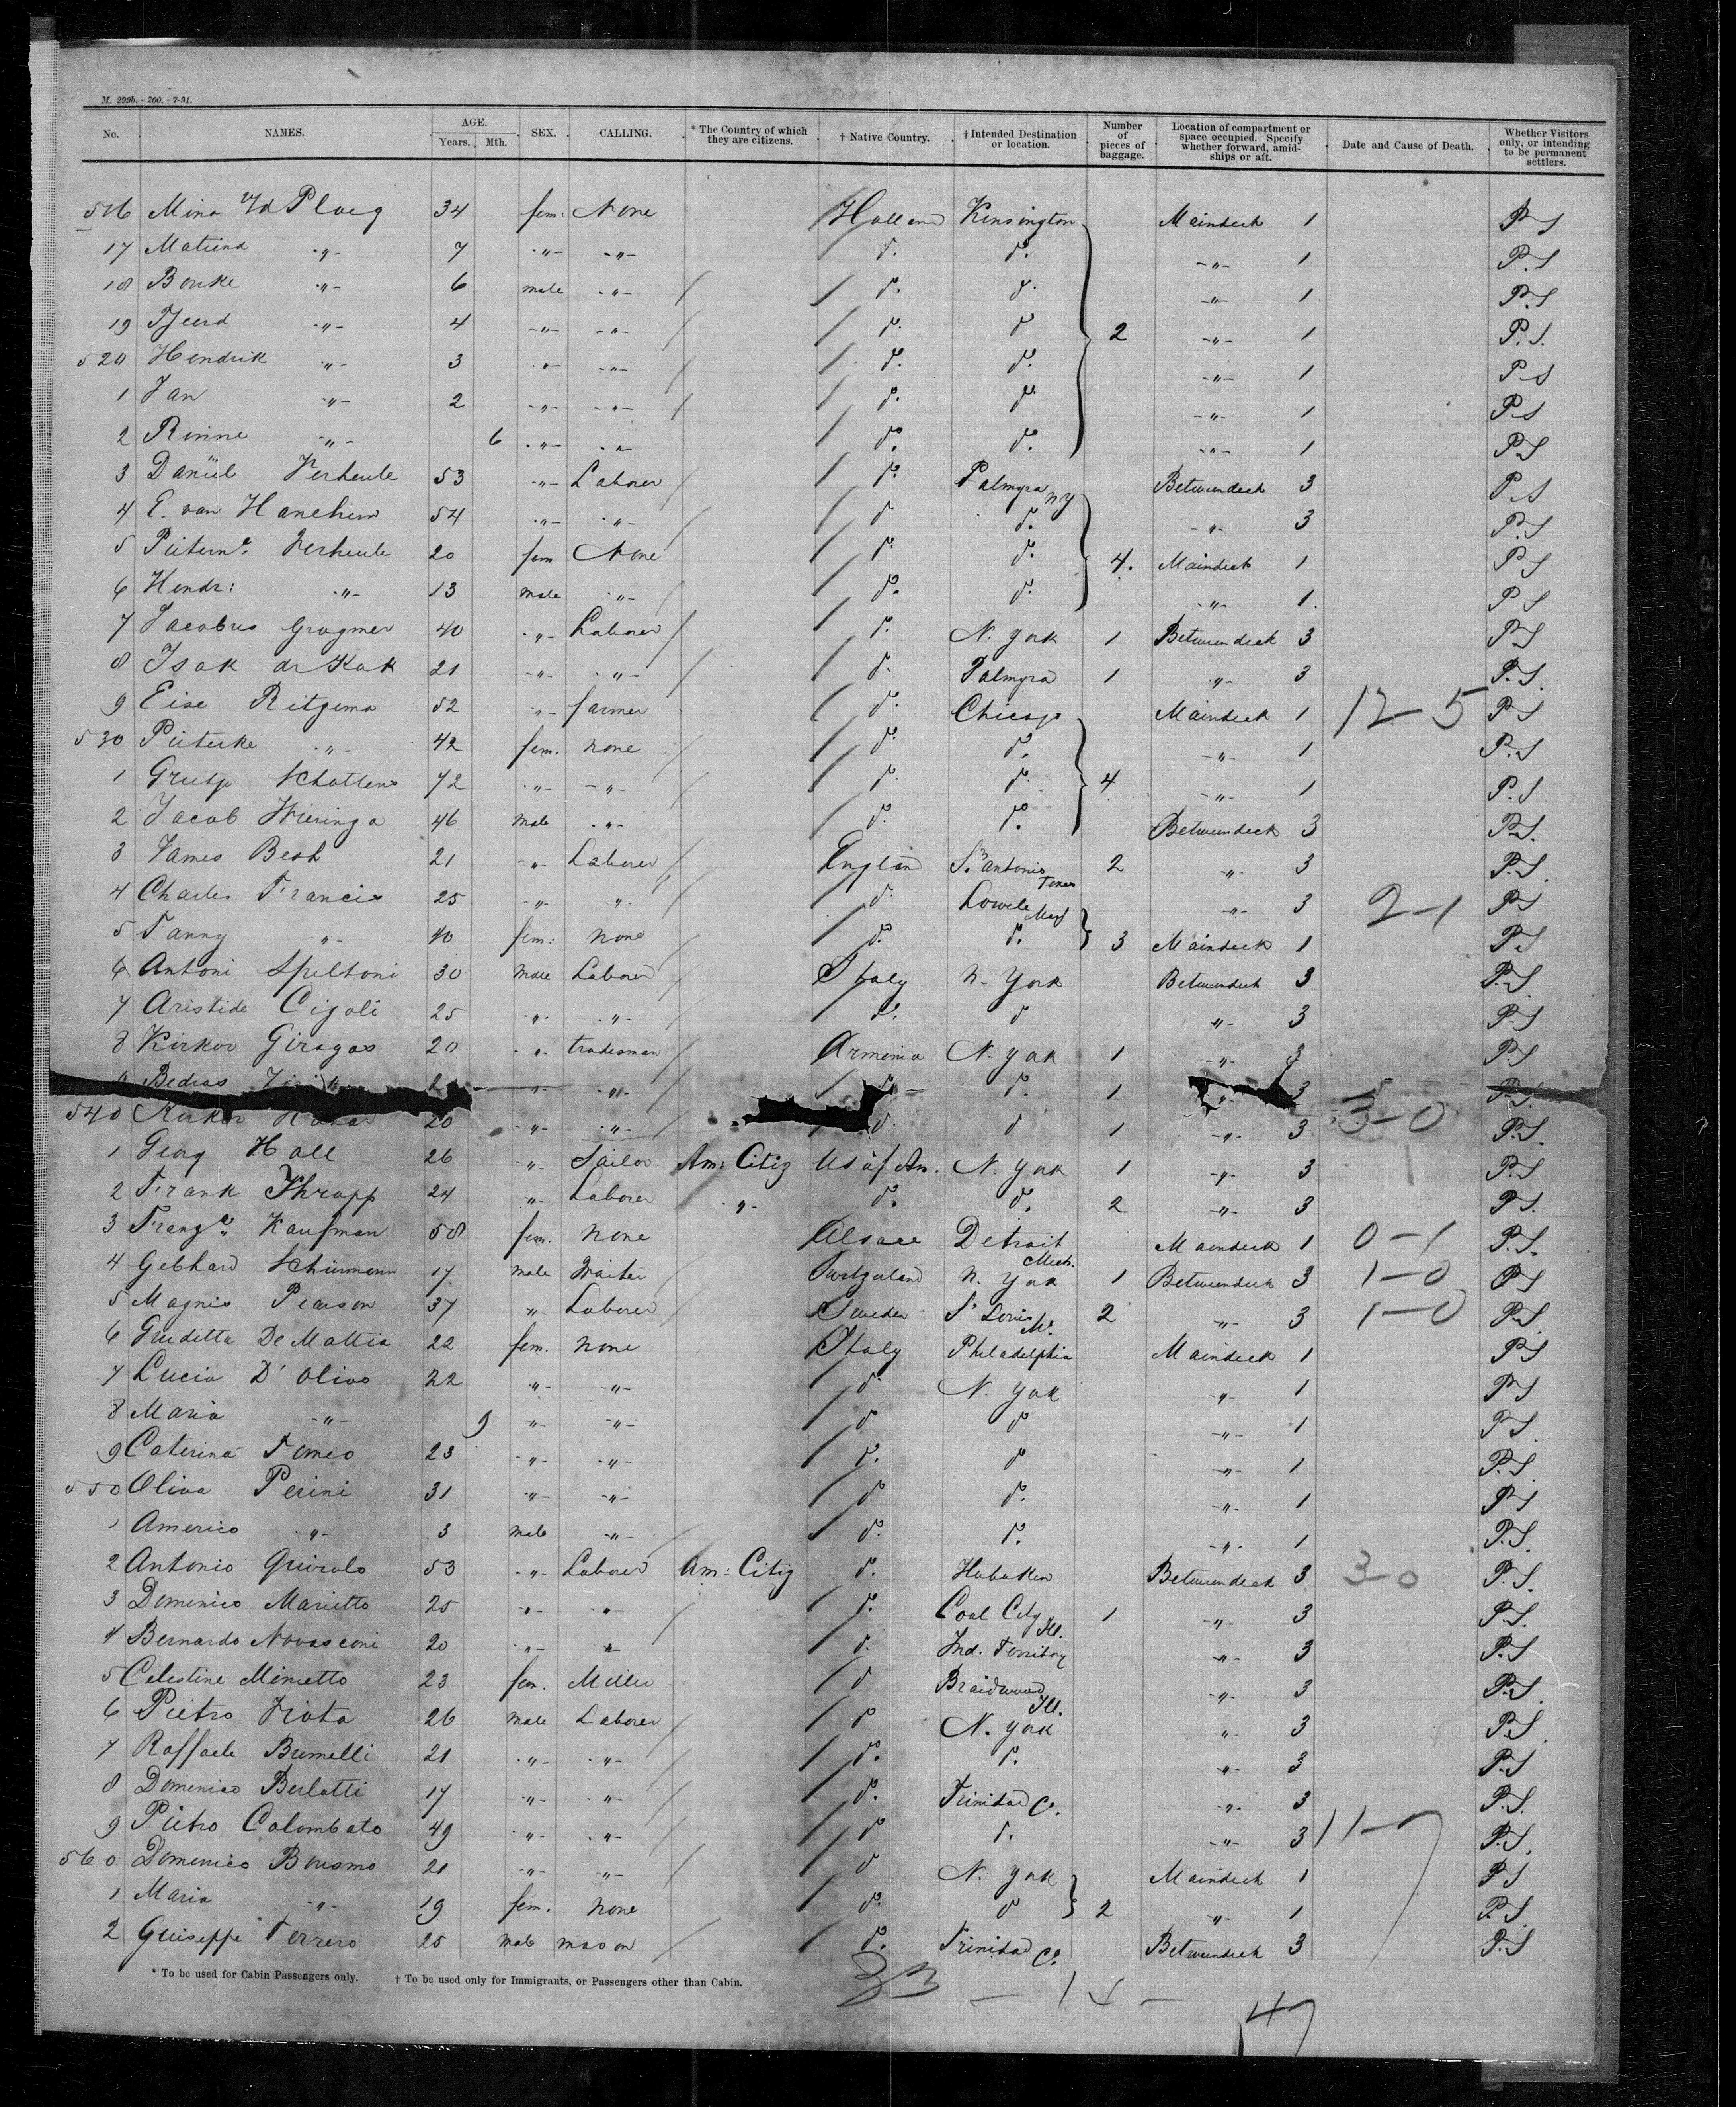 M. 299b. - 200. - 7-91.
No. NAMES. AGE. Years. Mth. SEX. CALLING. * The Country of which they are citizens. † Native Country. † Intended Destination or location. Number of pieces of baggage. Location of compartment or space occupied. Specify whether forward, amidships or aft. Date and Cause of Death. Whether Visitors only, or intending to be permanent settlers.
516 Mina v/d Ploeg 34 fem: None Holland Kensington Maindeck 1 P.S
17 Matiena -"- 7 -"- -"- d. d. -"- 1 P.S
18 Bouke -"- 6 male -"- / d. d. -"- 1 P.S
19 Tjeerd -"- 4 -"- -"- / d. d 2 -"- 1 P.S.
520 Hendrik -"- 3 -"- -"- / d. d. -"- 1 P.S
1 Jan -"- 2 -"- -"- / d. d. -"- 1 P.S
2 Rinine -"- 6 -"- -"- d. d. -"- 1 P.S
3 Daniel Verheule 53 -"- Laborer / d. Palmyra NY Betweendeck 3 P.S
4 E. van Hanehem 54 -"- -"- / d d. -"- 3 P.S
5 Pieterna. Verheule 20 fem None d. d. 4. Maindeck 1 P.S
6 Hendr: -"- 13 male -"- / d. d. -"- 1. P.S
7 Jacobus 40 -"- Laborer / d. N. York 1 Betweendeck 3 P.S
8 Isak de Kok 21 -"- -"- / d. Palmyra 1 -"- 3 P.S.
9 Eise Ritzema 52 -"- farmer d. Chicago Maindeck 1 12-5 P.S
530 Pieterke -"- 42 fem. none d. d. -"- 1 P.S
1 Grietje Schottens 72 -"- -"- d. d. 4 -"- 1 P.S
2 Jacob Wieringa 46 Male -"- d. d. Betweendeck 3 P.S.
3 James 21 -"- Laborer / England St. Antonio Texas 2 -"- 3 P.S.
4 Charles Francis 25 -"- -"- / d. Lowele Mass -"- 3 2-1 P.S
5 Fanny -"- 40 fem: none d. d. 3 Maindeck 1 P.S
6 Antoni Speltoni 30 Male Laborer / Italy N. York Betweendeck 3 P.S
7 Aristide Cigoli 25 -"- -"- / d. d -"- 3 P.S
8 Kirkor Giragos 20 -"- tradesman / Armenia N. York 1 -"- 3 P.S
9 Bedros -"- -"- / d. 1 3 P.S.
540 Kirkor 20 -"- -"- / d. d 1 -"- 3 3-0 P.S.
1 Georg Hall 26 -"- Sailor Am: Citiz US of Am. N. York 1 -"- 3 1 P.S
2 Frank Thropp 24 -"- Laborer -"- d. d. 2 -"- 3 P.S.
3 Kaufman 58 fem. none Alsace Detroit Mich. Maindeck 1 0-1 P.S.
4 Gebhard Schürmann 17 male Waiter / Switzerland N. York 1 Betweendeck 3 1-0 P.S
5 Magnis Pearson 37 -"- Laborer / Sweden St Louis Mo. 2 -"- 3 1-0 P.S
6 Giuditta De Mattia 22 fem. none Italy Philadelphia Maindeck 1 P.S
7 Lucia D'Olivo 22 -"- -"- d. N. York -"- 1 P.S
8 Maria -"- 9 -"- -"- d d -"- 1 P.S.
9 Caterina Tomeo 23 -"- -"- d. d -"- 1 P.S.
550 Oliva Perini 31 -"- -"- d d. -"- 1 P.S
1 Americo -"- 3 male -"- / d. d. -"- 1 P.S.
2 Antonio Guirolo 53 -"- Laborer Am: Citiz d. Hoboken Betweendeck 3 3-0 P.S.
3 Domenico Marietto 25 -"- -"- / d. Coal City Ill. 1 -"- 3 P.S.
4 Bernardo Novasconi 20 -"- -"- d. Ind. Territory -"- 3 P.S
5 Celestine Minietto 23 fem. Miller d Braidwood Ill. -"- 3 P.S.
6 Pietro Viota 26 Male Laborer / d N. York -"- 3 P.S.
7 Raffaele Brunelli 21 -"- -"- / d. d. -"- 3 P.S
8 Domenico Berlotti 17 -"- -"- / d. Trinidad Co. -"- 3 P.S.
9 Pietro Colombato 49 -"- -"- / d d. -"- 3 11-7 P.S.
560 Domenico Bonomo 21 -"- -"- / d N. York Maindeck 1 P.S
1 Maria -"- 19 fem. none d. d 2 -"- 1 P.S.
2 Guiseppe Ferrero 25 Male mason / d. Trinidad Co. Betweendeck 3 P.S
* To be used for Cabin Passengers only. † To be used only for Immigrants, or Passengers other than Cabin.
33 - 14 -
47